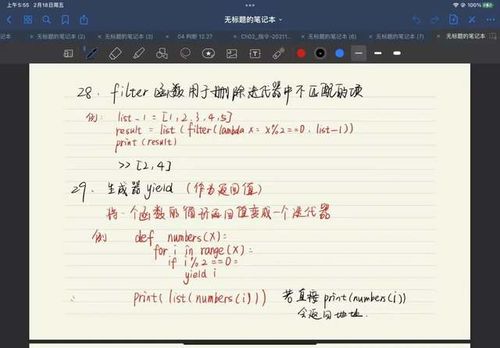 上午5:55 2月18日周五
100%
无标题的笔记本
无标题的笔记本 (2)
无标题的笔记本 (3)
04 判断 12.27
无标题的笔记本 (6)
无标题的笔记本 (7)
无标题的笔记本
28. filter 函数用于删除迭代器中不匹配的项
例: list_1 = [1,2,3,4,5]
result = list (filter(lambda x = x%2==0, list_1))
print (result)
>> [2,4]
29. 生成器 yield (作为返回值)
指一个函数的循环返回值变成一个迭代器
例 def numbers(x):
for i in range(x):
if i%2==0:
yield i
print( list (numbers(i))) 若直接print(numbers(i))
会返回地址.